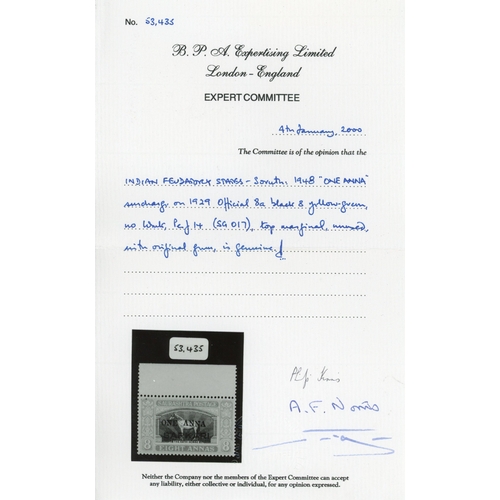 No. 53,435
B. P. A. Expertising Limited
London - England
EXPERT COMMITTEE
4th January, 2000
The Committee is of the opinion that the
INDIAN FEUDATORY STATES - Soruth 1948 "ONE ANNA"
surcharge on 1929 Official 8a black & yellow-green,
no wmk, Perf 14 (SG O17), top marginal, unused,
with original gum, is genuine.
53,435
ONE ANNA
8 EIGHT ANNAS 8
A. F. Norris
Neither the Company nor the members of the Expert Committee can accept
any liability, either collective or individual, for any opinion expressed.